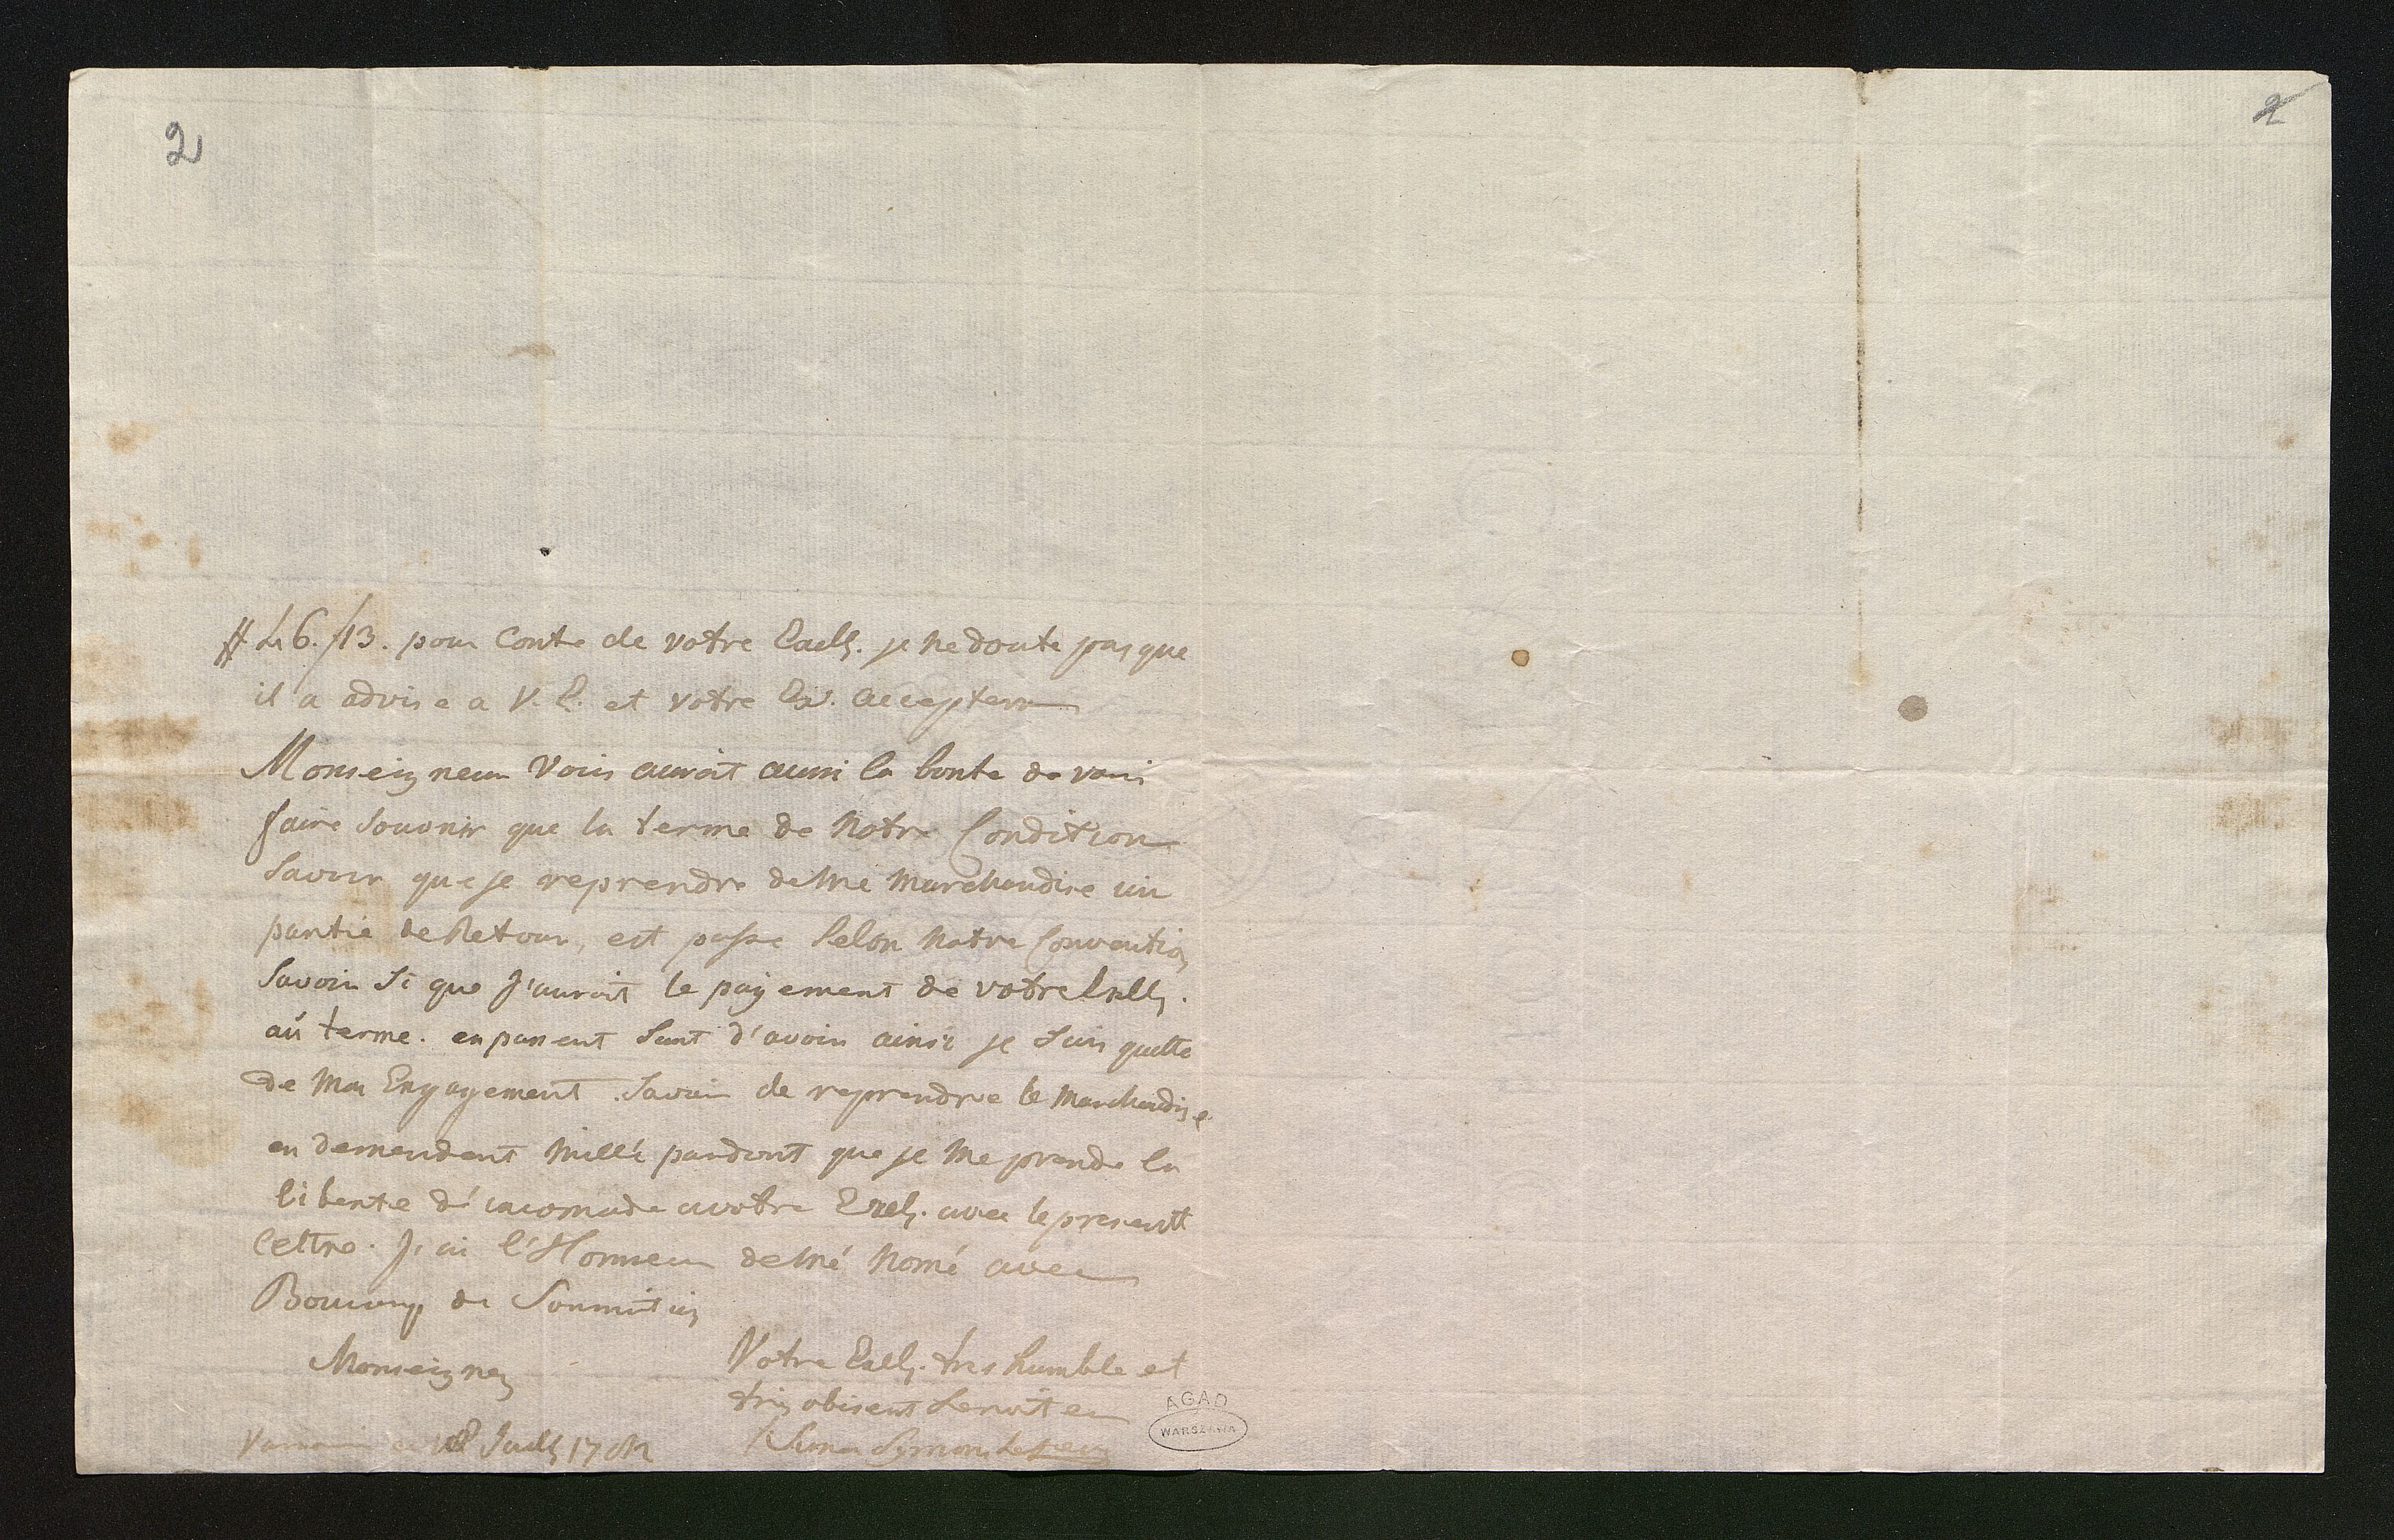 2
2
# 46. f13. pour Conte de votre Excll. je ne doute pas que
il a advise a V. E. et votre Ex. accepterra
Monseigneur Vous auroit aussi la bonte de vous
faire Souvenir que la terme de Notre Condition
Savoir que je reprendre de Me Marchandise un
partie de Retour, est passe Selon Notre Convention
Savoir Si que J'auroit le payement de votre Excll.
au terme. en Sant d'avoir ainsi je Suis quitte
de Mon Engagement. Savoir de reprendre le Marchandise
en demendent Mille pardont que je Me prende la
liberte d'incomode avotre Excll. avec le presentt
lettre. J'ai l'Honneur de Mé Nomé avec
Boucoup de Soumition
Monseigneur
Votre Excll. tres humble et
tres obisent Servite
Juill 17
Simon
AGAD
WARSZAWA